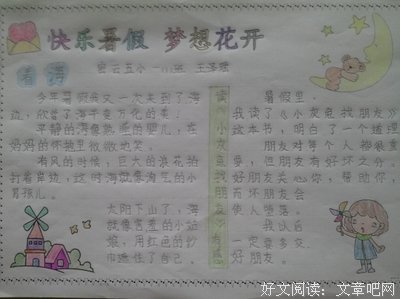 快乐暑假 梦想花开
密云五小 一(1)班
看海
今年暑假我又一次来到了海
边,欣赏了海千变万化的美!
平静的海象熟睡的婴儿,在
妈妈的怀抱里微微地笑。
有风的时候,巨大的浪花拍
打着岸边,这时海就像淘气的小
男孩儿。
太阳下山了,海
就像害羞的小姑
娘,用红色的纱
巾遮住了自己。
读小灰兔找朋友有感
暑假里
我读了《小灰兔找朋友》
这本书,明白了一个道理
朋友对每个人都很重
要,但朋友有好坏之分。
好朋友关心你,帮助你,
而坏朋友会
使人堕落。
我以后
一定要多交
好朋友。
好文阅读:文章吧网